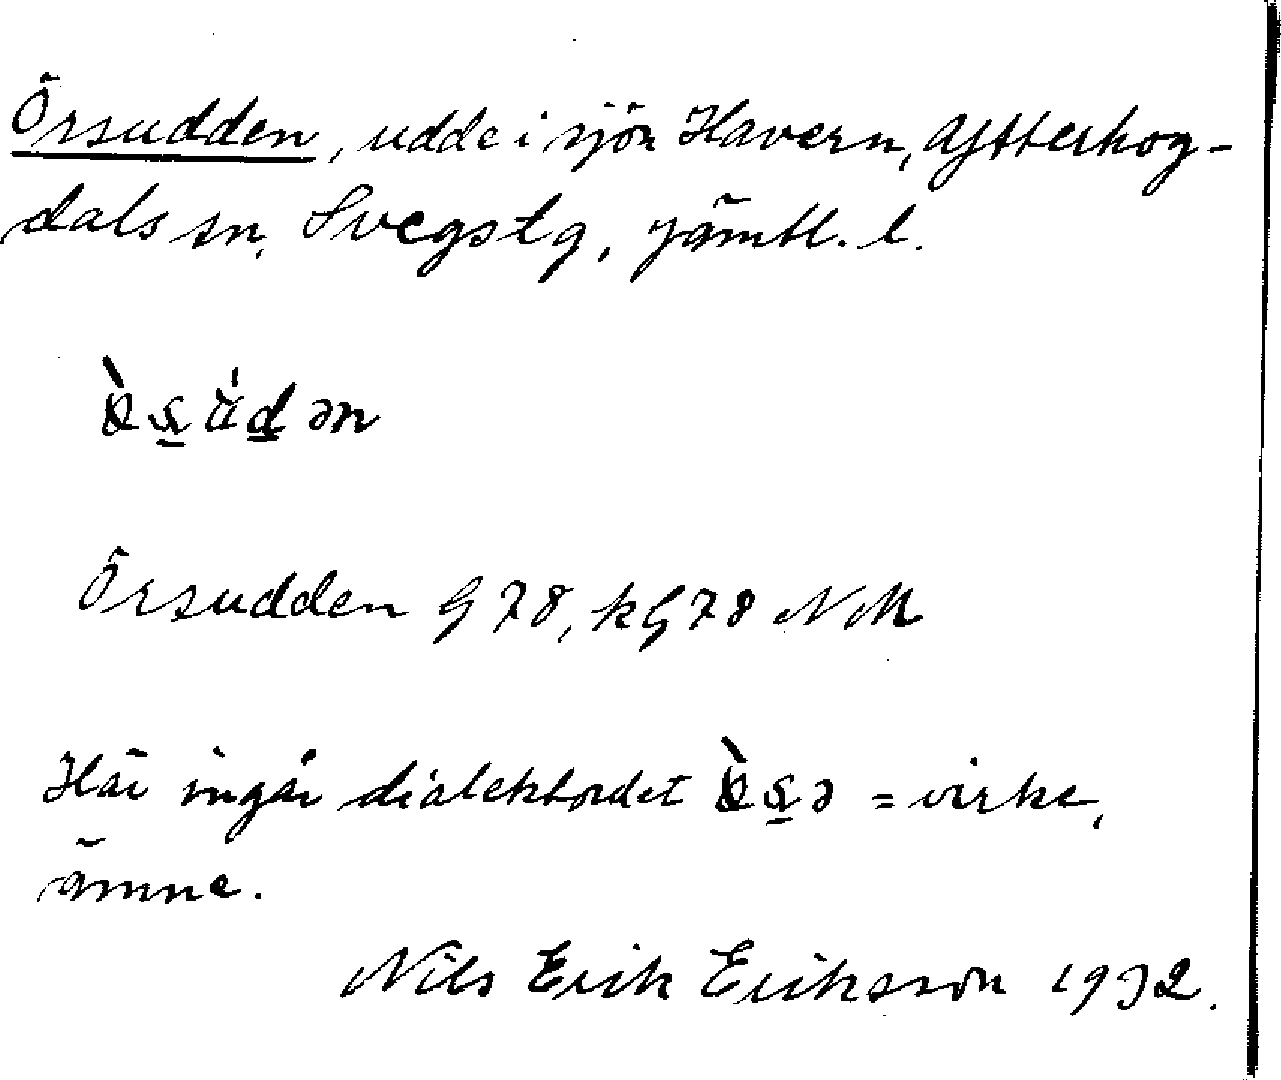 Örsudden, udde i sjön Havern, Ytterhog-
dals sn, Svegs tg, Jämtl. l.
Örsudden G 78, kG 78 NM
Här ingår dialektordet = virke,
ämne.
Nils Erik Eriksson 1932.